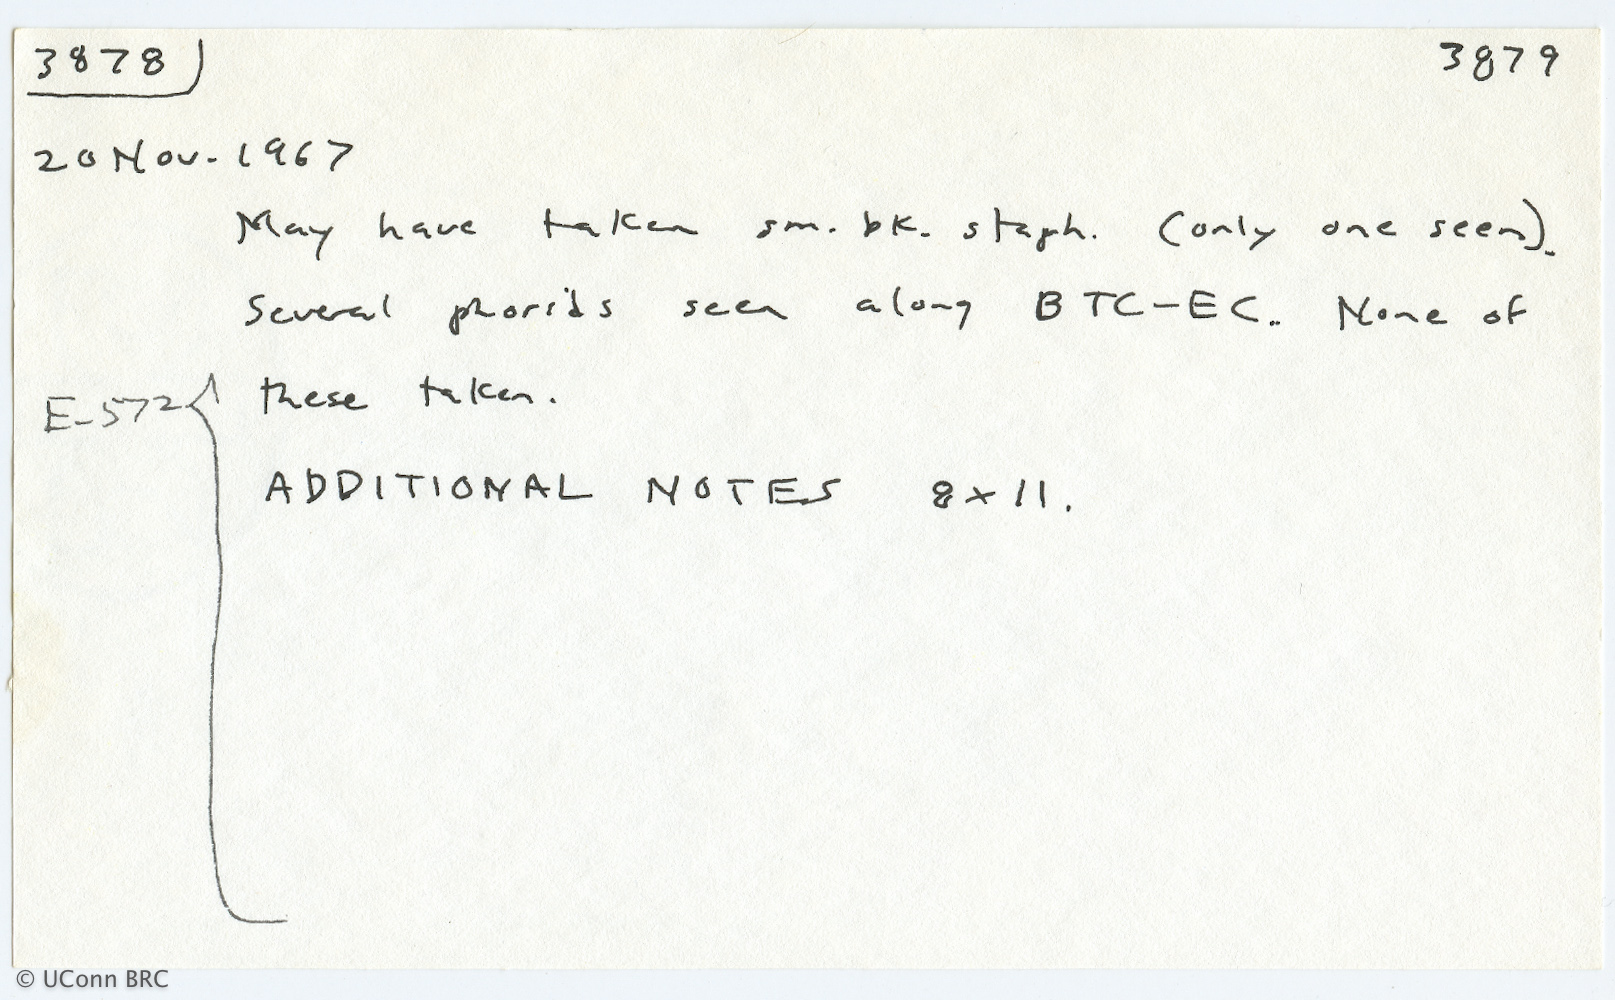 3878 3879
20 Nov. 1967
May have taken sm. bk. staph. (only one seen).
Several phorids seen along BTC-EC. None of
E-572 these taken.
ADDITIONAL NOTES 8x11.
© UConn BRC